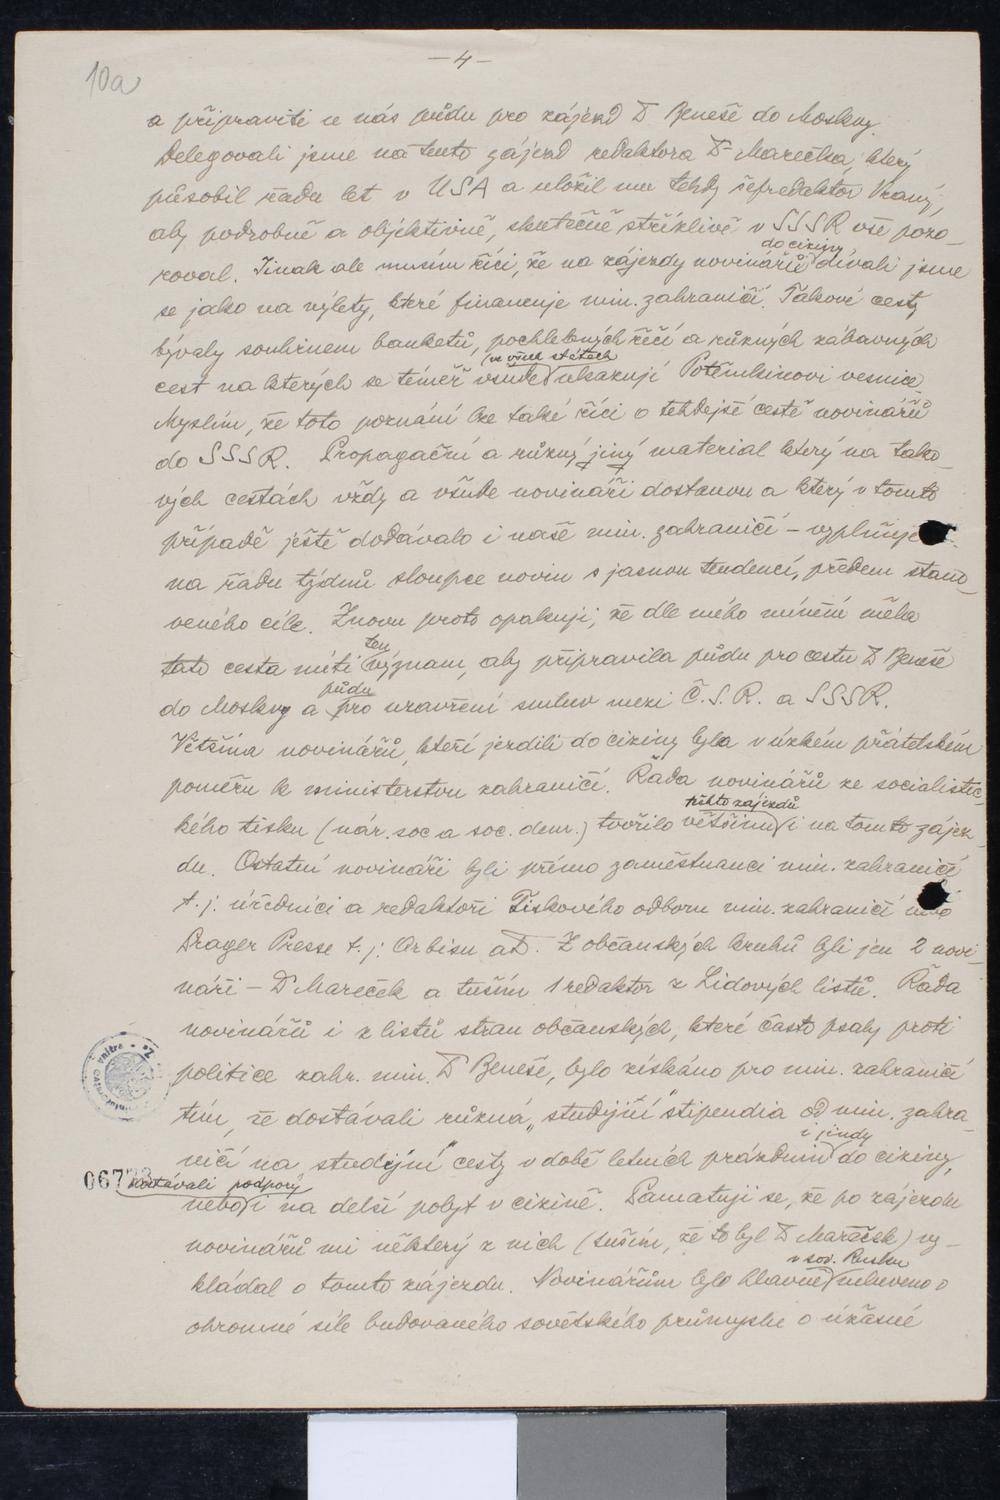 10a
— 4 —
a připraviti u nás půdu pro zájezd Dr Beneše do Moskvy.
Delegovali jsme na tento zájezd redaktora Dr Marečka, který
působil řadu let v USA a uložil mu tehdy šéfredaktor Vraný,
aby podrobně a objektivně, skutečně střízlivě v SSSR vše pozo-
roval. Jinak ale musím říci, že na zájezdy novinářů do ciziny, dívali jsme
se jako na výlety, které financuje min. zahraničí. Takové cesty
bývaly souhrnem banketů, pochlebných řečí a různých zábavných
cest na kterých se téměř všude ve všech státech ukazují Potěmkinovi vesnice.
Myslím, že toto poznání lze také říci o tehdejší cestě novinářů
do SSSR. Propagační a různý jiný material který na tako-
vých cestách vždy a všude novináři dostanou a který v tomto
případě ještě dodávalo i naše min. zahraničí – vyplňuje
na řadu týdnů sloupce novin s jasnou tendencí, předem stano-
veného cíle. Znovu proto opakuji, že dle mého mínění měla
tato cesta míti ten význam, aby připravila půdu pro cestu Dr Beneše
do Moskvy a půdu pro uzavření smluv mezi Č.S.R. a SSSR.
Většina novinářů, kteří jezdili do ciziny byla v úzkém přátelském
poměru k ministerstvu zahraničí. Řada novinářů ze socialistic-
kého tisku (nár. soc a soc. dem.) tvořilo většinu těchto zájezdů i na tomto zájez-
du. Ostatní novináři byli přímo zaměstnanci min. zahraničí
t. j. úředníci a redaktoři Tiskového odboru min. zahraničí nebo
Prager Presse t. j. Orbisu atd. Z občanských kruhů byli jen 2 novi-
náři – Dr Mareček a tuším 1 redaktor z Lidových listů. Řada
novinářů i z listů stran občanských, které často psaly proti
politice zahr. min. Dr Beneše, bylo získáno pro min. zahraničí
tím, že dostávali různá „studijní" stipendia od min. zahra-
ničí na „studijní" cesty v době letních prázdnin i jindy do ciziny,
nebo dostávali podpory i na delší pobyt v cizině. Pamatuji se, že po zájezdu
novinářů mi některý z nich (tuším, že to byl Dr Mareček) vy-
kládal o tomto zájezdu. Novinářům bylo hlavně v sov. Rusku mluveno o
ohromné síle budovaného sovětského průmyslu o úžasné